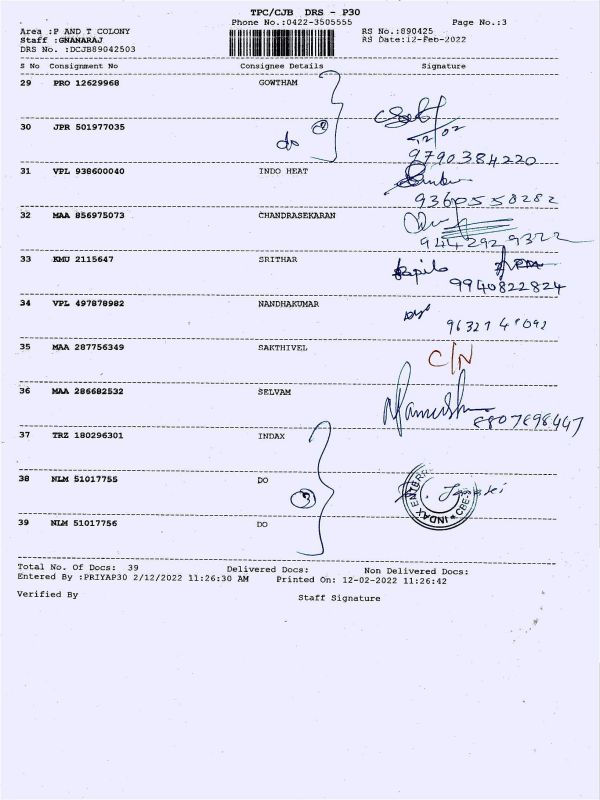 TPC/CJB DRS - P30
Phone No.:0422-3505555 Page No.:3
Area :P AND T COLONY RS No.:890425
Staff :GNANARAJ RS Date:12-Feb-2022
DRS No. :DCJB89042503
S No Consignment No Consignee Details Signature
29 PRO 12629968 GOWTHAM
30 JPR 501977035 do 2 12/02
9790384220
31 VPL 938600040 INDO HEAT
9360558282
32 MAA 856975073 CHANDRASEKARAN
944292 9322
33 KMU 2115647 SRITHAR
9940822824
34 VPL 497878982 NANDHAKUMAR
35 MAA 287756349 SAKTHIVEL C/N
36 MAA 286682532 SELVAM
37 TRZ 180296301 INDAX
38 NLM 51017755 DO 3
39 NLM 51017756 DO
Total No. Of Docs: 39 Delivered Docs: Non Delivered Docs:
Entered By :PRIYAP30 2/12/2022 11:26:30 AM Printed On: 12-02-2022 11:26:42
Verified By Staff Signature